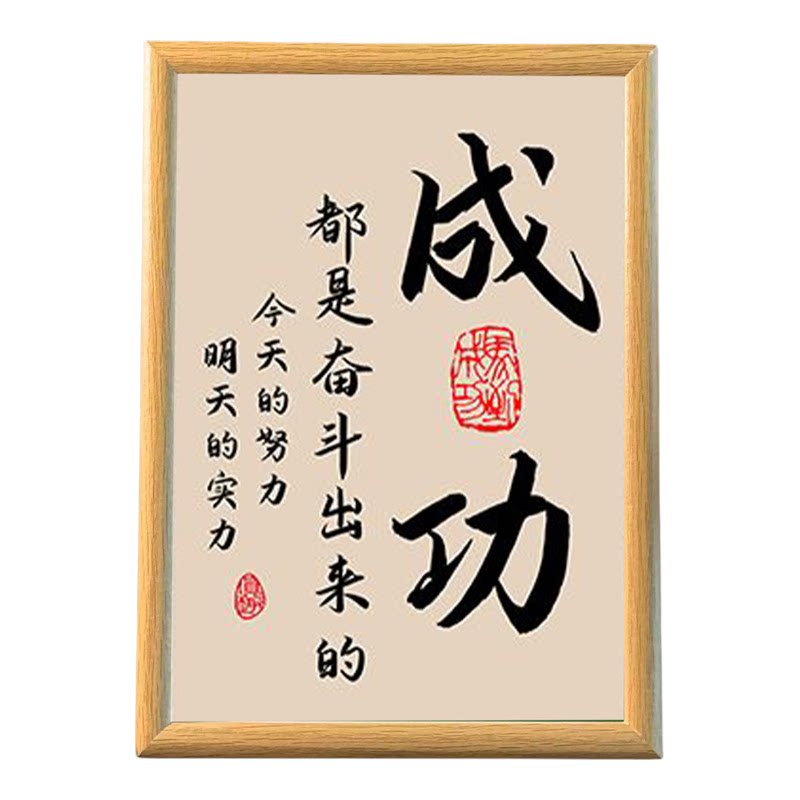 成功
都是奋斗出来的
今天的努力
明天的实力